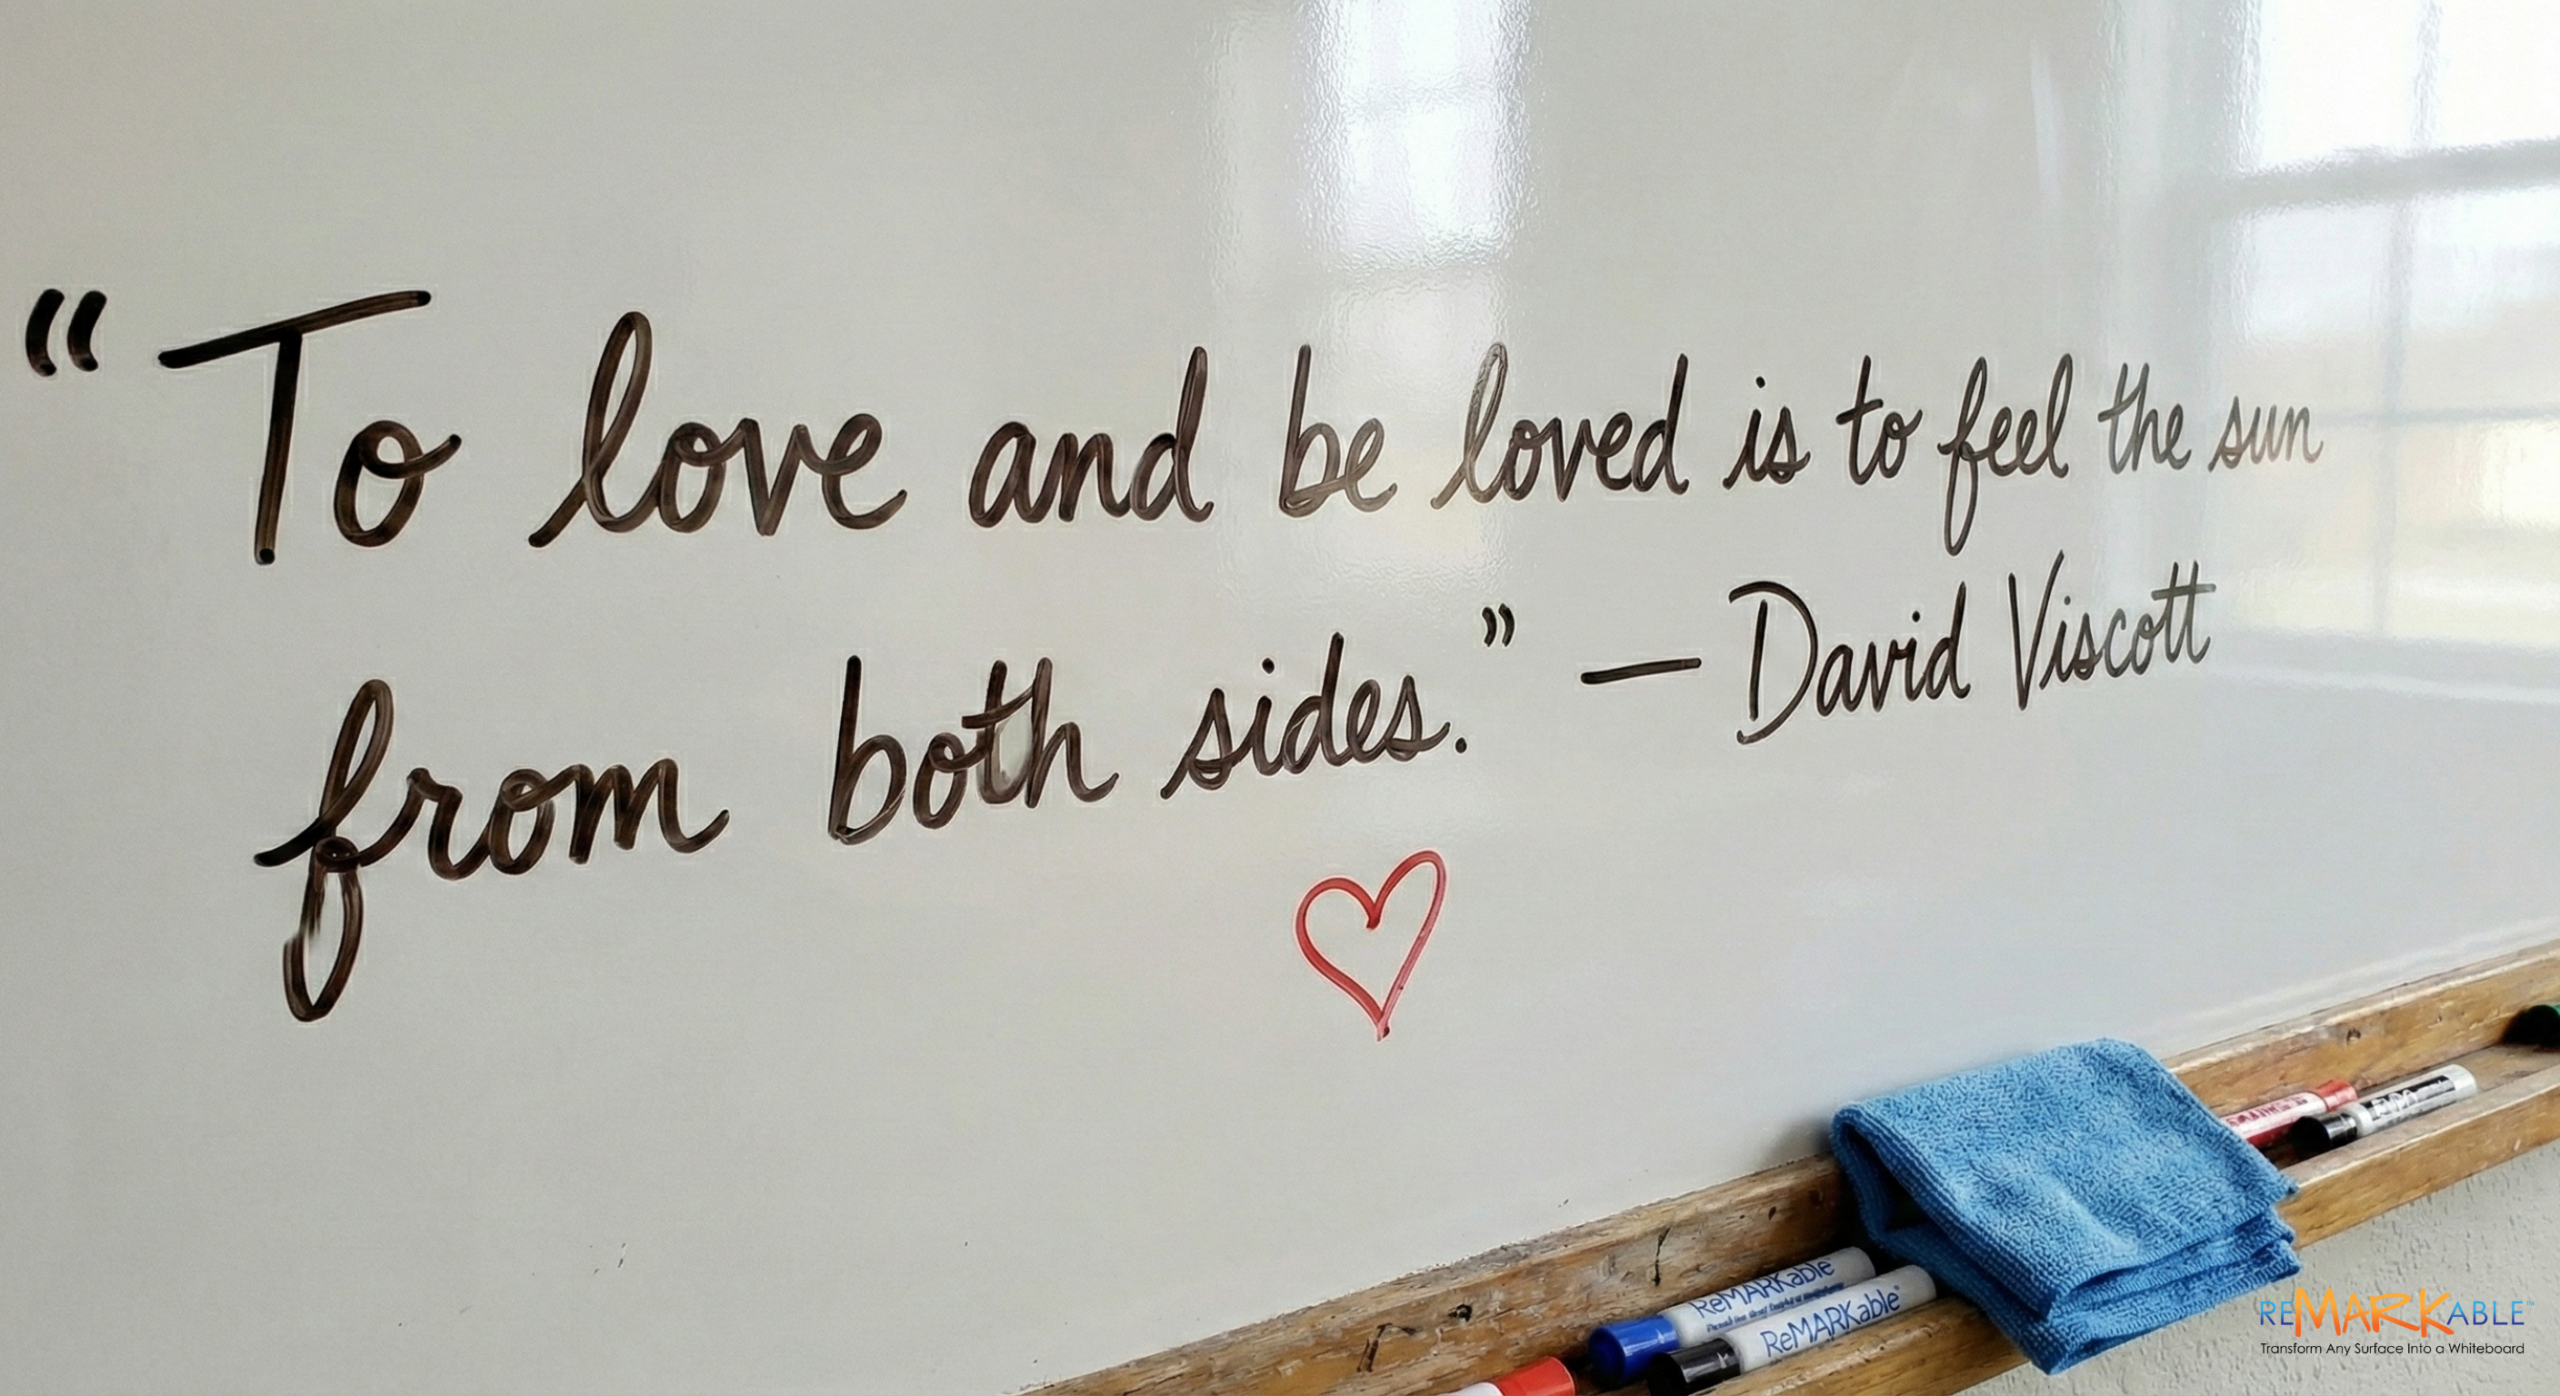 “To love and be loved is to feel the sun
from both sides.” — David Viscott
ReMARKable
ReMARKable
EXPO
REMARKABLE™
Transform Any Surface Into a Whiteboard